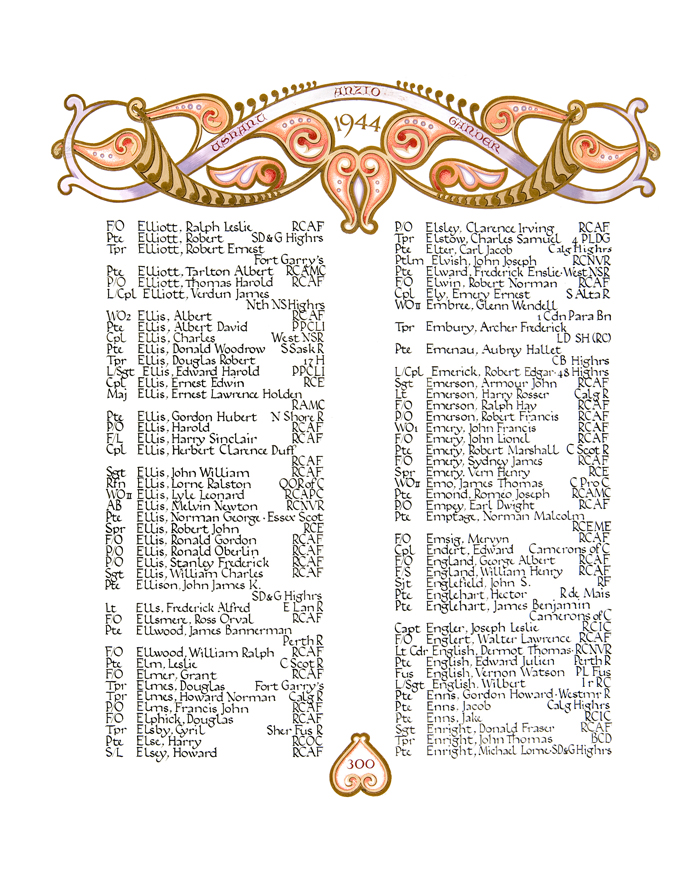 USHANT
ANZIO
GANDER
1944
F/O Elliott, Ralph Leslie RCAF
Pte Elliott, Robert SD&G Highrs
Tpr Elliott, Robert Ernest
Fort Garry's
Pte Elliott, Tarlton Albert RCAMC
P/O Elliott, Thomas Harold RCAF
L/Cpl Elliott, Verdun James
Nth NS Highrs
WO2 Ellis, Albert RCAF
Pte Ellis, Albert David PPCLI
Cpl Ellis, Charles West NSR
Pte Ellis, Donald Woodrow S Sask R
Tpr Ellis, Douglas Robert 17 H
L/Sgt Ellis, Edward Harold PPCLI
Cpl Ellis, Ernest Edwin RCE
Maj Ellis, Ernest Lawrence Holden
RAMC
Pte Ellis, Gordon Hubert N Shore R
P/O Ellis, Harold RCAF
F/L Ellis, Harry Sinclair RCAF
Cpl Ellis, Herbert Clarence Duff
RCAF
Sgt Ellis, John William RCAF
Rfn Ellis, Lorne Ralston QOR of C
WOII Ellis, Lyle Leonard RCAPC
AB Ellis, Melvin Newton RCNVR
Pte Ellis, Norman George · Essex Scot
Spr Ellis, Robert John RCE
F/O Ellis, Ronald Gordon RCAF
P/O Ellis, Ronald Oberlin RCAF
P/O Ellis, Stanley Frederick RCAF
Sgt Ellis, William Charles RCAF
Pte Ellison, John James K.
SD&G Highrs
Lt Ells, Frederick Alfred E Lan R
F/O Ellsmere, Ross Orval RCAF
Pte Ellwood, James Bannerman
Perth R
F/O Ellwood, William Ralph RCAF
Pte Elm, Leslie C Scot R
F/O Elmer, Grant RCAF
Tpr Elmes, Douglas Fort Garry's
Tpr Elmes, Howard Norman Calg R
P/O Elms, Francis John RCAF
F/O Elphick, Douglas RCAF
Tpr Elsby, Cyril Sher Fus R
Pte Else, Harry RCOC
S/L Elsey, Howard RCAF
P/O Elsley, Clarence Irving RCAF
Tpr Elstow, Charles Samuel 4 PLDG
Pte Elter, Carl Jacob Calg Highrs
Ptlm Elvish, John Joseph RCNVR
Pte Elward, Frederick Enslie · West NSR
F/O Elwin, Robert Norman RCAF
Cpl Ely, Emery Ernest S Alta R
WOII Embree, Glenn Wendell
1 Cdn Para Bn
Tpr Embury, Archer Frederick
LD SH (RC)
Pte Emenau, Aubry Hallet
CB Highrs
L/Cpl Emerick, Robert Edgar · 48 Highrs
Sgt Emerson, Armour John RCAF
Lt Emerson, Harry Rosser Calg R
F/O Emerson, Ralph Hay RCAF
P/O Emerson, Robert Francis RCAF
WO1 Emery, John Francis RCAF
F/O Emery, John Lionel RCAF
Pte Emery, Robert Marshall C Scot R
F/O Emery, Sydney James RCAF
Spr Emery, Vern Henry RCE
WOII Emo, James Thomas C Pro C
Pte Emond, Romeo Joseph RCAMC
P/O Empey, Earl Dwight RCAF
Pte Emptage, Norman Malcolm
RCEME
F/O Emsig, Mervyn RCAF
Cpl Endert, Edward Camerons of C
F/O England, George Albert RCAF
F/S England, William Henry RCAF
Sjt Englefield, John S. RF
Pte Englehart, Hector R de Mais
Pte Englehart, James Benjamin
Camerons of C
Capt Engler, Joseph Leslie RCIC
F/O Englert, Walter Lawrence RCAF
Lt Cdr English, Dermot Thomas · RCNVR
Pte English, Edward Julien Perth R
Fus English, Vernon Watson PL Fus
L/Sgt English, Wilbert Ir RC
Pte Enns, Gordon Howard · Westmr R
Pte Enns, Jacob Calg Highrs
Pte Enns, Jake RCIC
Sgt Enright, Donald Fraser RCAF
Tpr Enright, John Thomas BCD
Pte Enright, Michael Lorne · SD&G Highrs
300